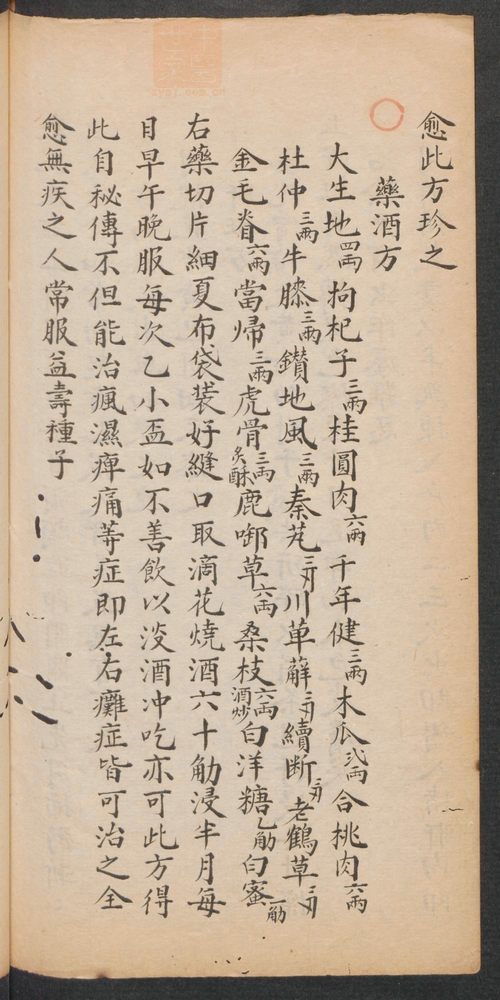 愈此方珍之
藥酒方
大生地四兩拘杞子三兩桂圓肉六兩千年健三兩木瓜弍兩合桃肉六兩
杜仲三兩牛膝三兩鑽地風三兩秦艽三兩川萆薢三兩續斷三兩老鶴草三兩
金毛脊六兩當歸三兩虎骨三兩炙酥鹿啣草六兩桑枝六兩酒炒白洋糖乙觔白蜜一觔
右藥切片細夏布袋裝好縫口取滴花燒酒六十觔浸半月每
日早午晚服每次乙小盃如不善飲以淡酒冲吃亦可此方得
此自秘傳不但能治瘋濕痺痛等症即左右癱症皆可治之全
愈無疾之人常服益壽種子